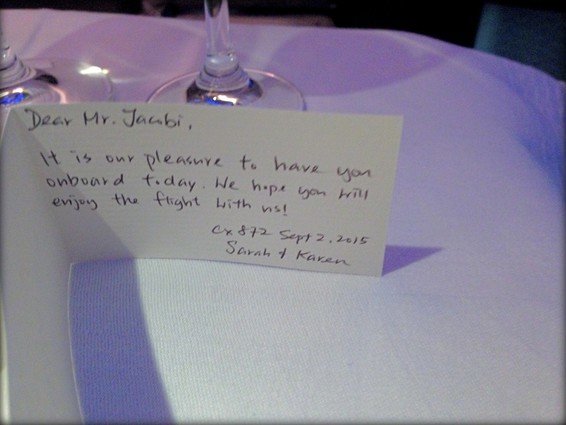 Dear Mr. Jacobi,
It is our pleasure to have you
onboard today. We hope you will
enjoy the flight with us!
CX 872 Sept 2, 2015
Sarah & Karen